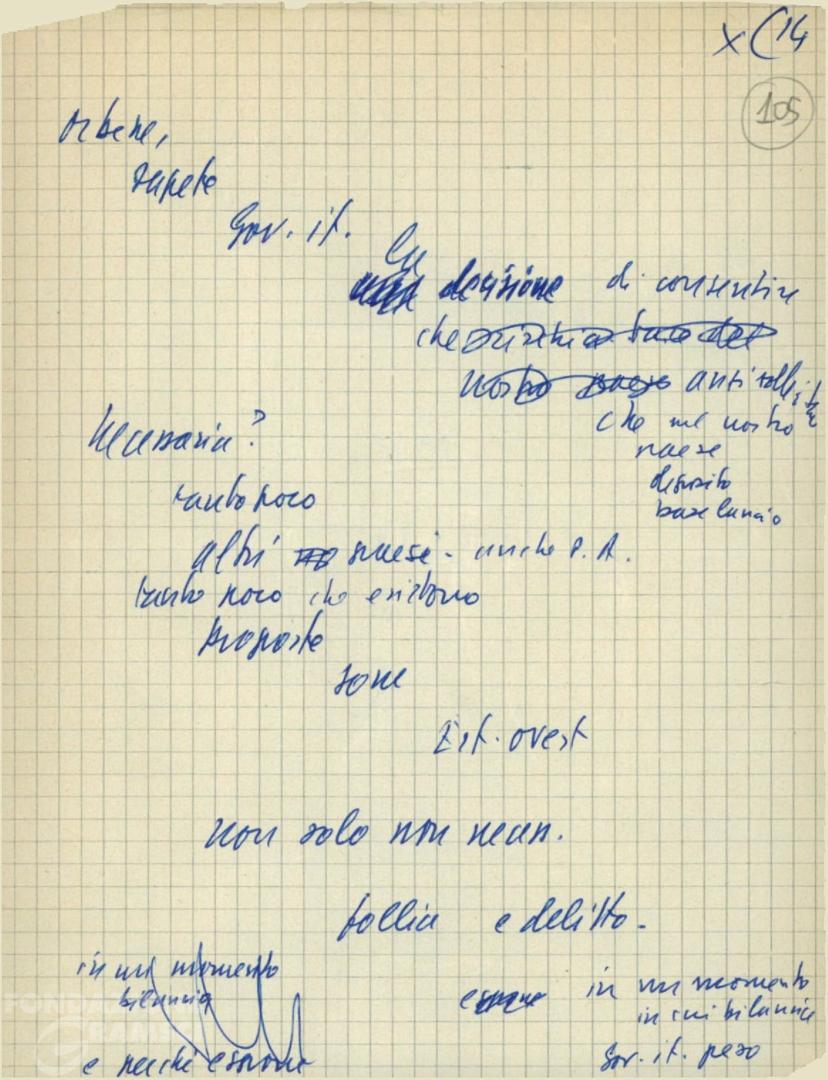 x (14
105
Orbene,
sapete
Gov. it.
la
decisione di consentire
che
nostro paese anti
che nel nostro
paese
deposito
base lancio
Necessaria?
tanto poco
altri paesi - anche P. A.
tanto poco che esistono
proposte
zone
Est. ovest
non solo non necess.
follia e delitto -
in un momento
bilancia
e perché espone
in un momento
in cui bilancia
Gov. it. peso
FONDA